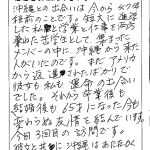 沖縄との出会いは今から47年
程前のことです。短大に進学
した私は学業と仕事を両方
兼ねた苦学生として集まった
メンバーの中に、沖縄から来た
人がいたのです。まだアメリカ
から返還されたばかりで
彼女も私も運命の出会い
でした。それから卒業後も
結婚後も65才になった今も
変わらぬ友情を結んでいます。
今回3回目の訪問です。
彼女と共に沖縄はあたたかく